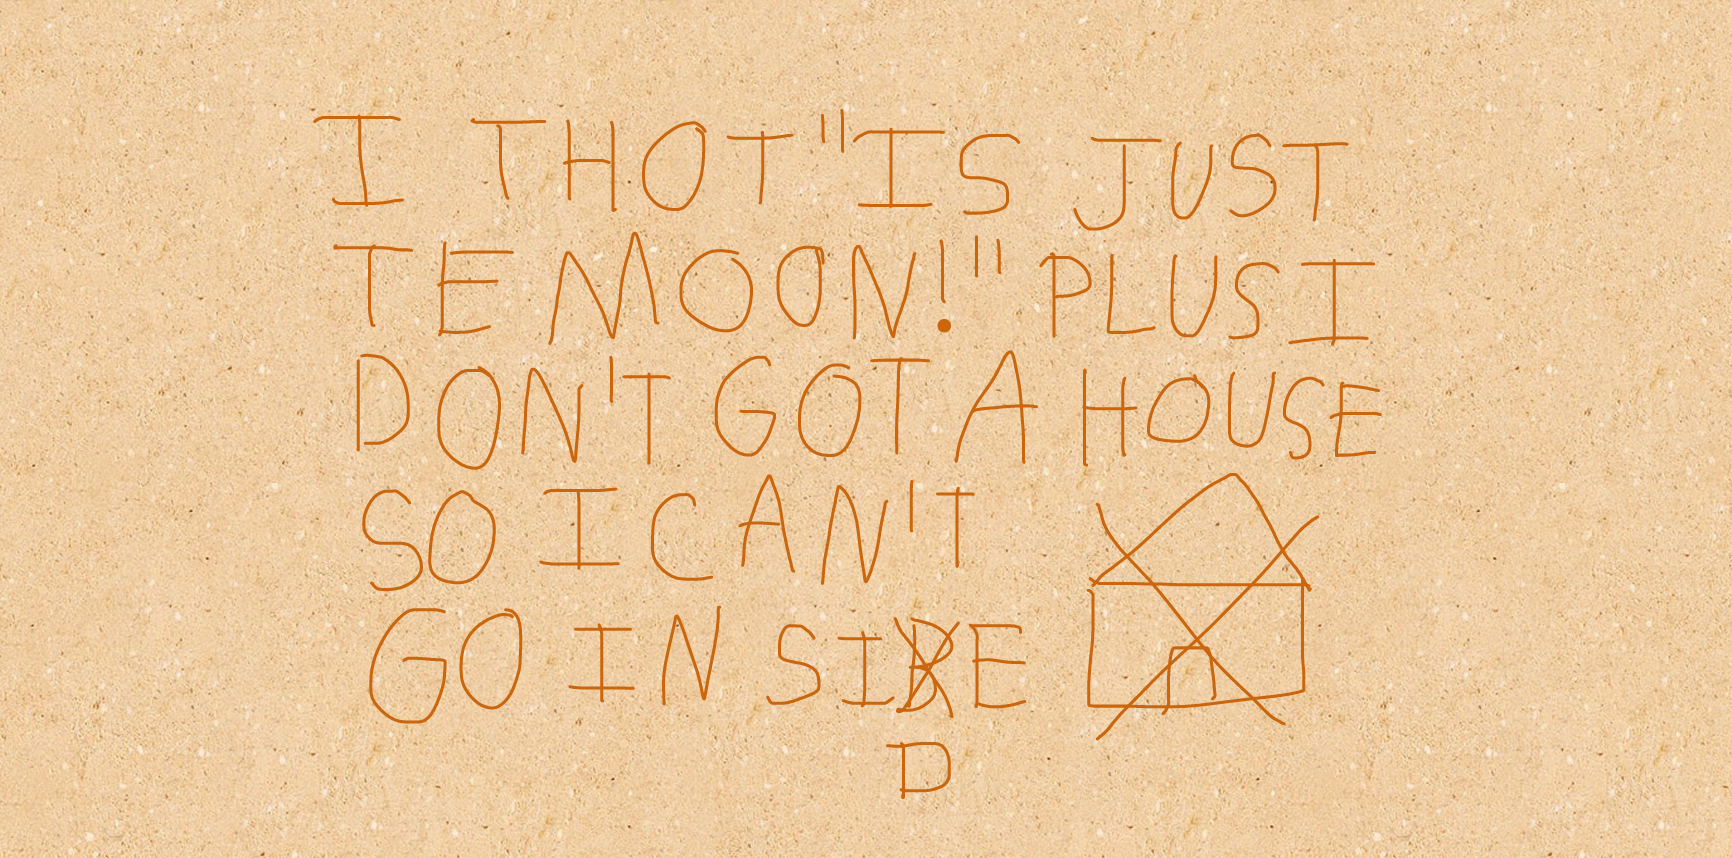 I THOT "IS JUST
TE MOON!" PLUS I
DON'T GOT A HOUSE
SO I CAN'T
GO IN SIDE